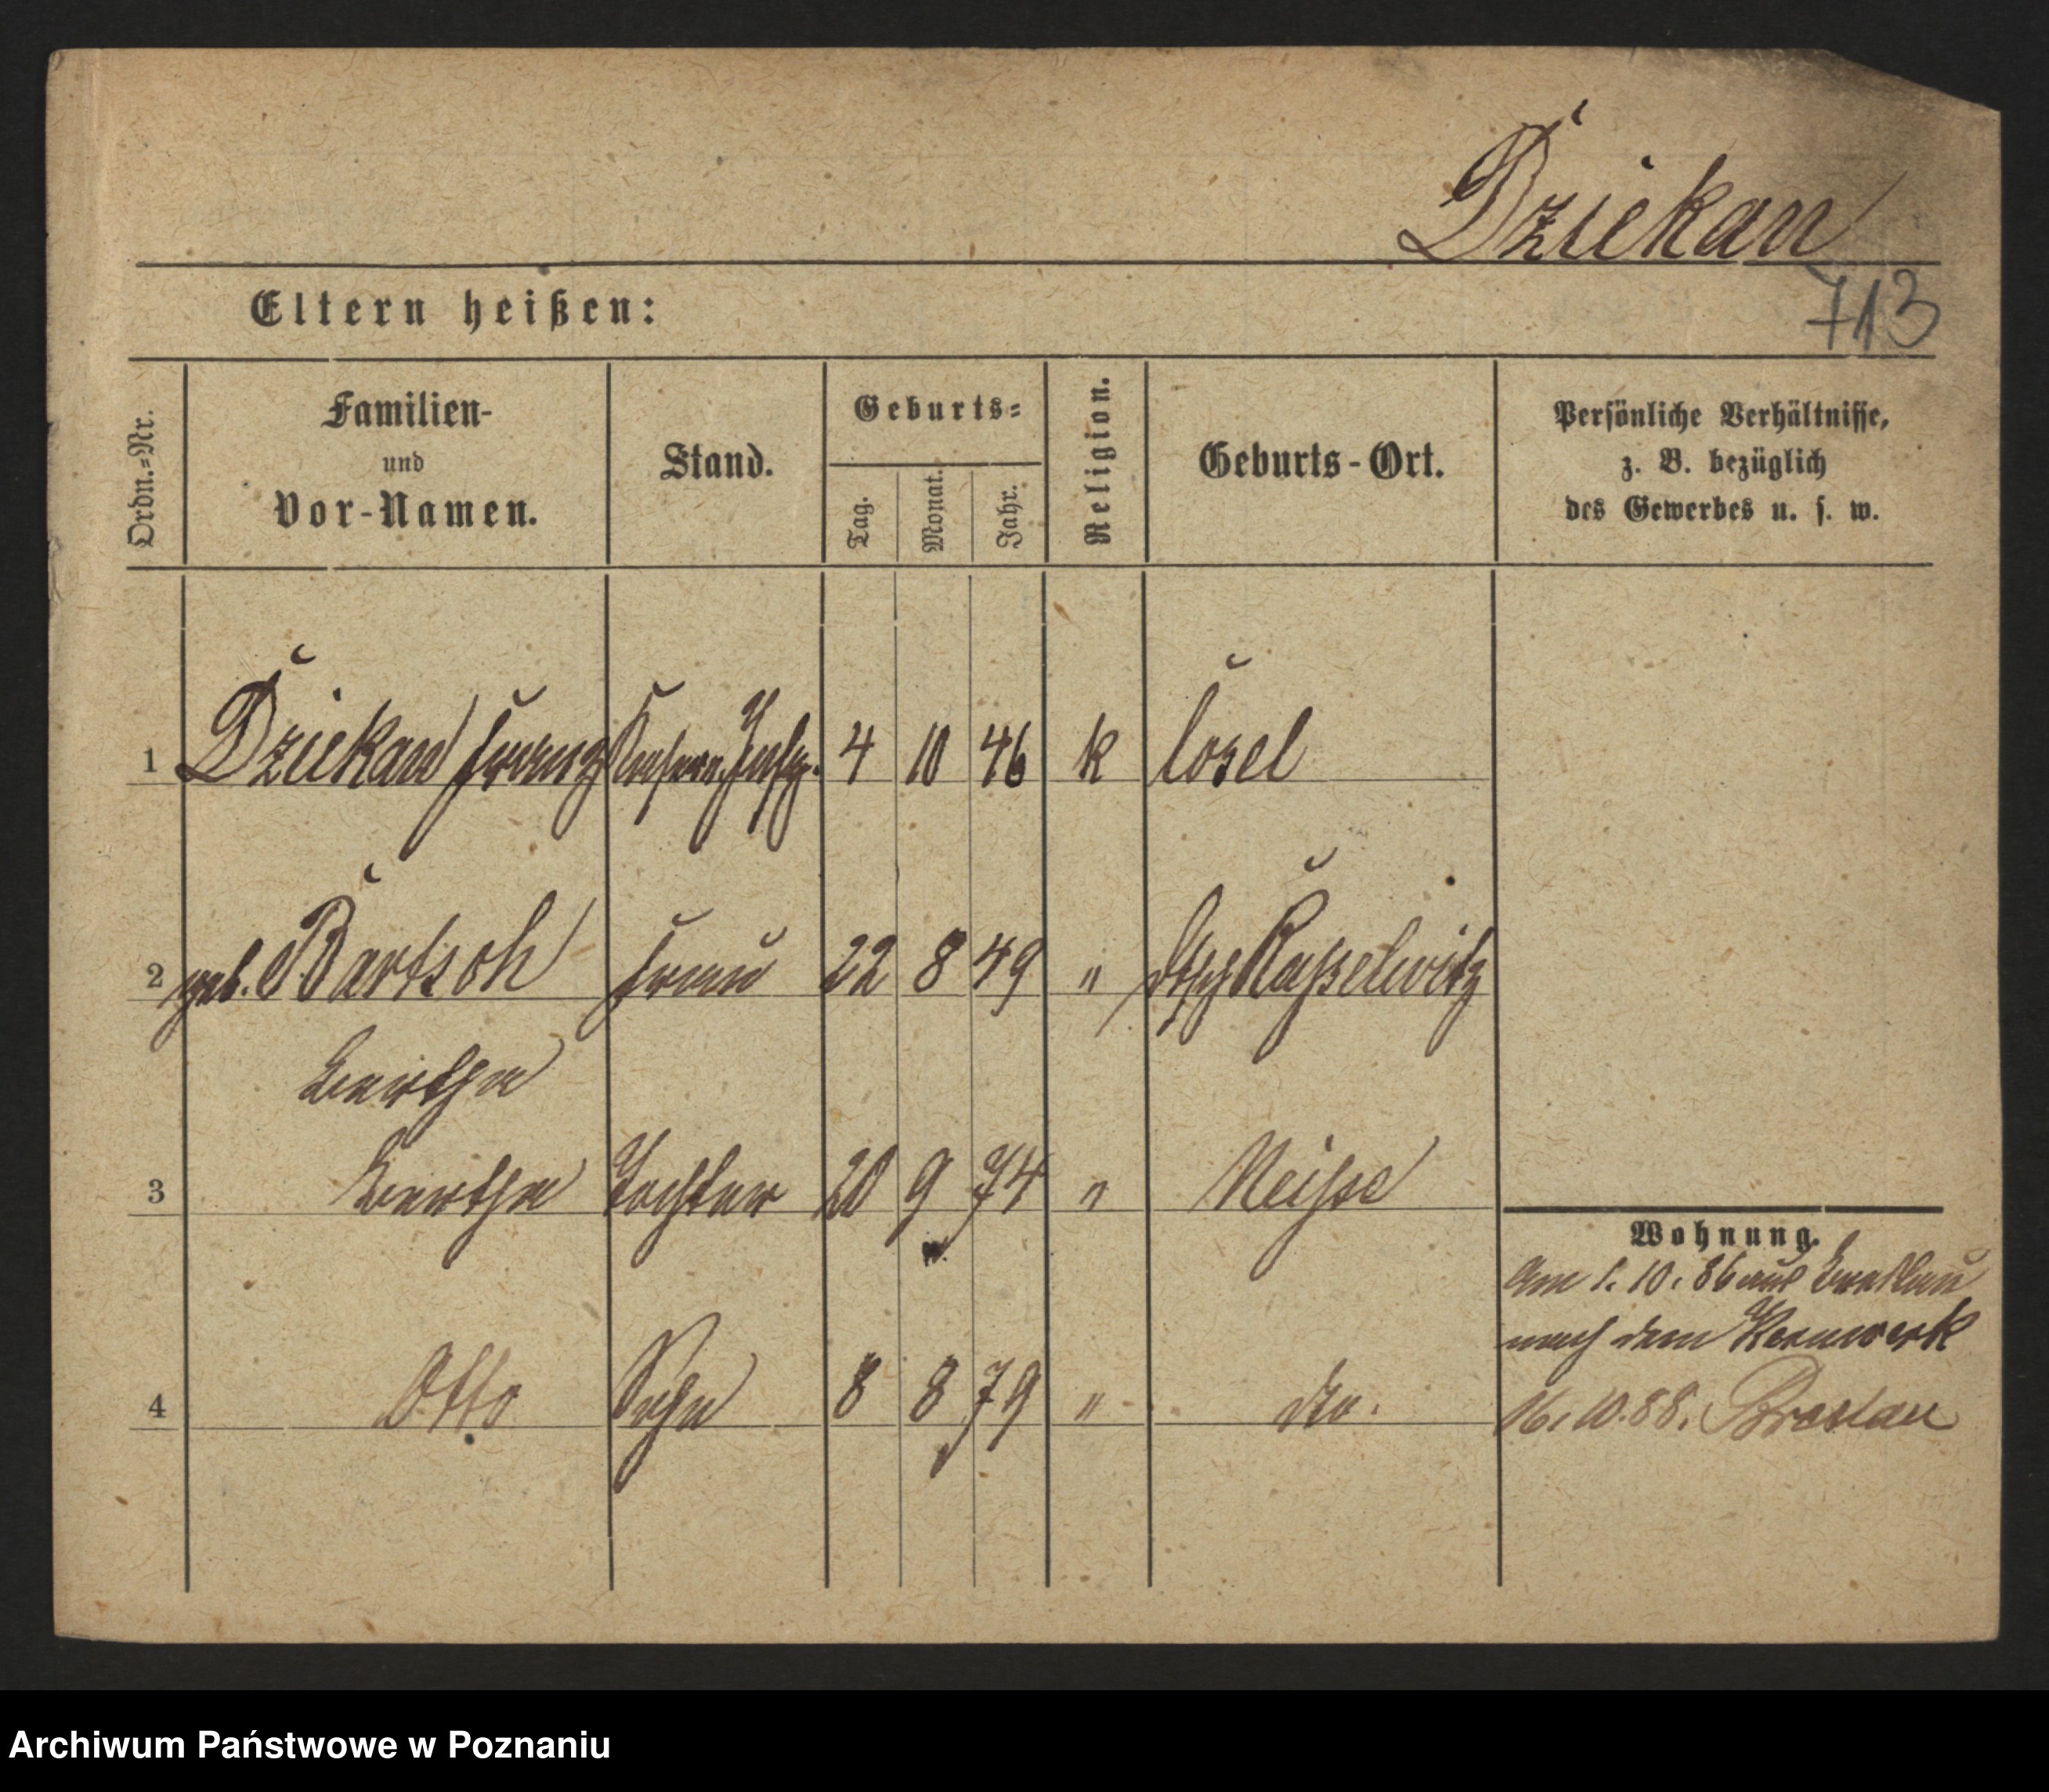 Dziekan
713
Eltern heißen:
Ordn.-Nr.
Familien-
und
Vor-Namen.
Stand.
Geburts-
Tag.
Monat.
Jahr.
Religion.
Geburts-Ort.
Persönliche Verhältnisse,
z. B. bezüglich
des Gewerbes u. s. w.
1 Dziekan Franz Kasern. Insp. 4 10 46 k Cosel
2 geb. Bartsch Frau 22 8 49 " Dtsch Rasselwitz
Bertha
3 Bertha Tochter 20 9 74 " Neisse
4 Otto Sohn 8 8 79 " do.
Wohnung.
Am 1. 10. 86 aus Breslau
nach dem Kernwerk
16. 10. 88. Breslau
Archiwum Państwowe w Poznaniu